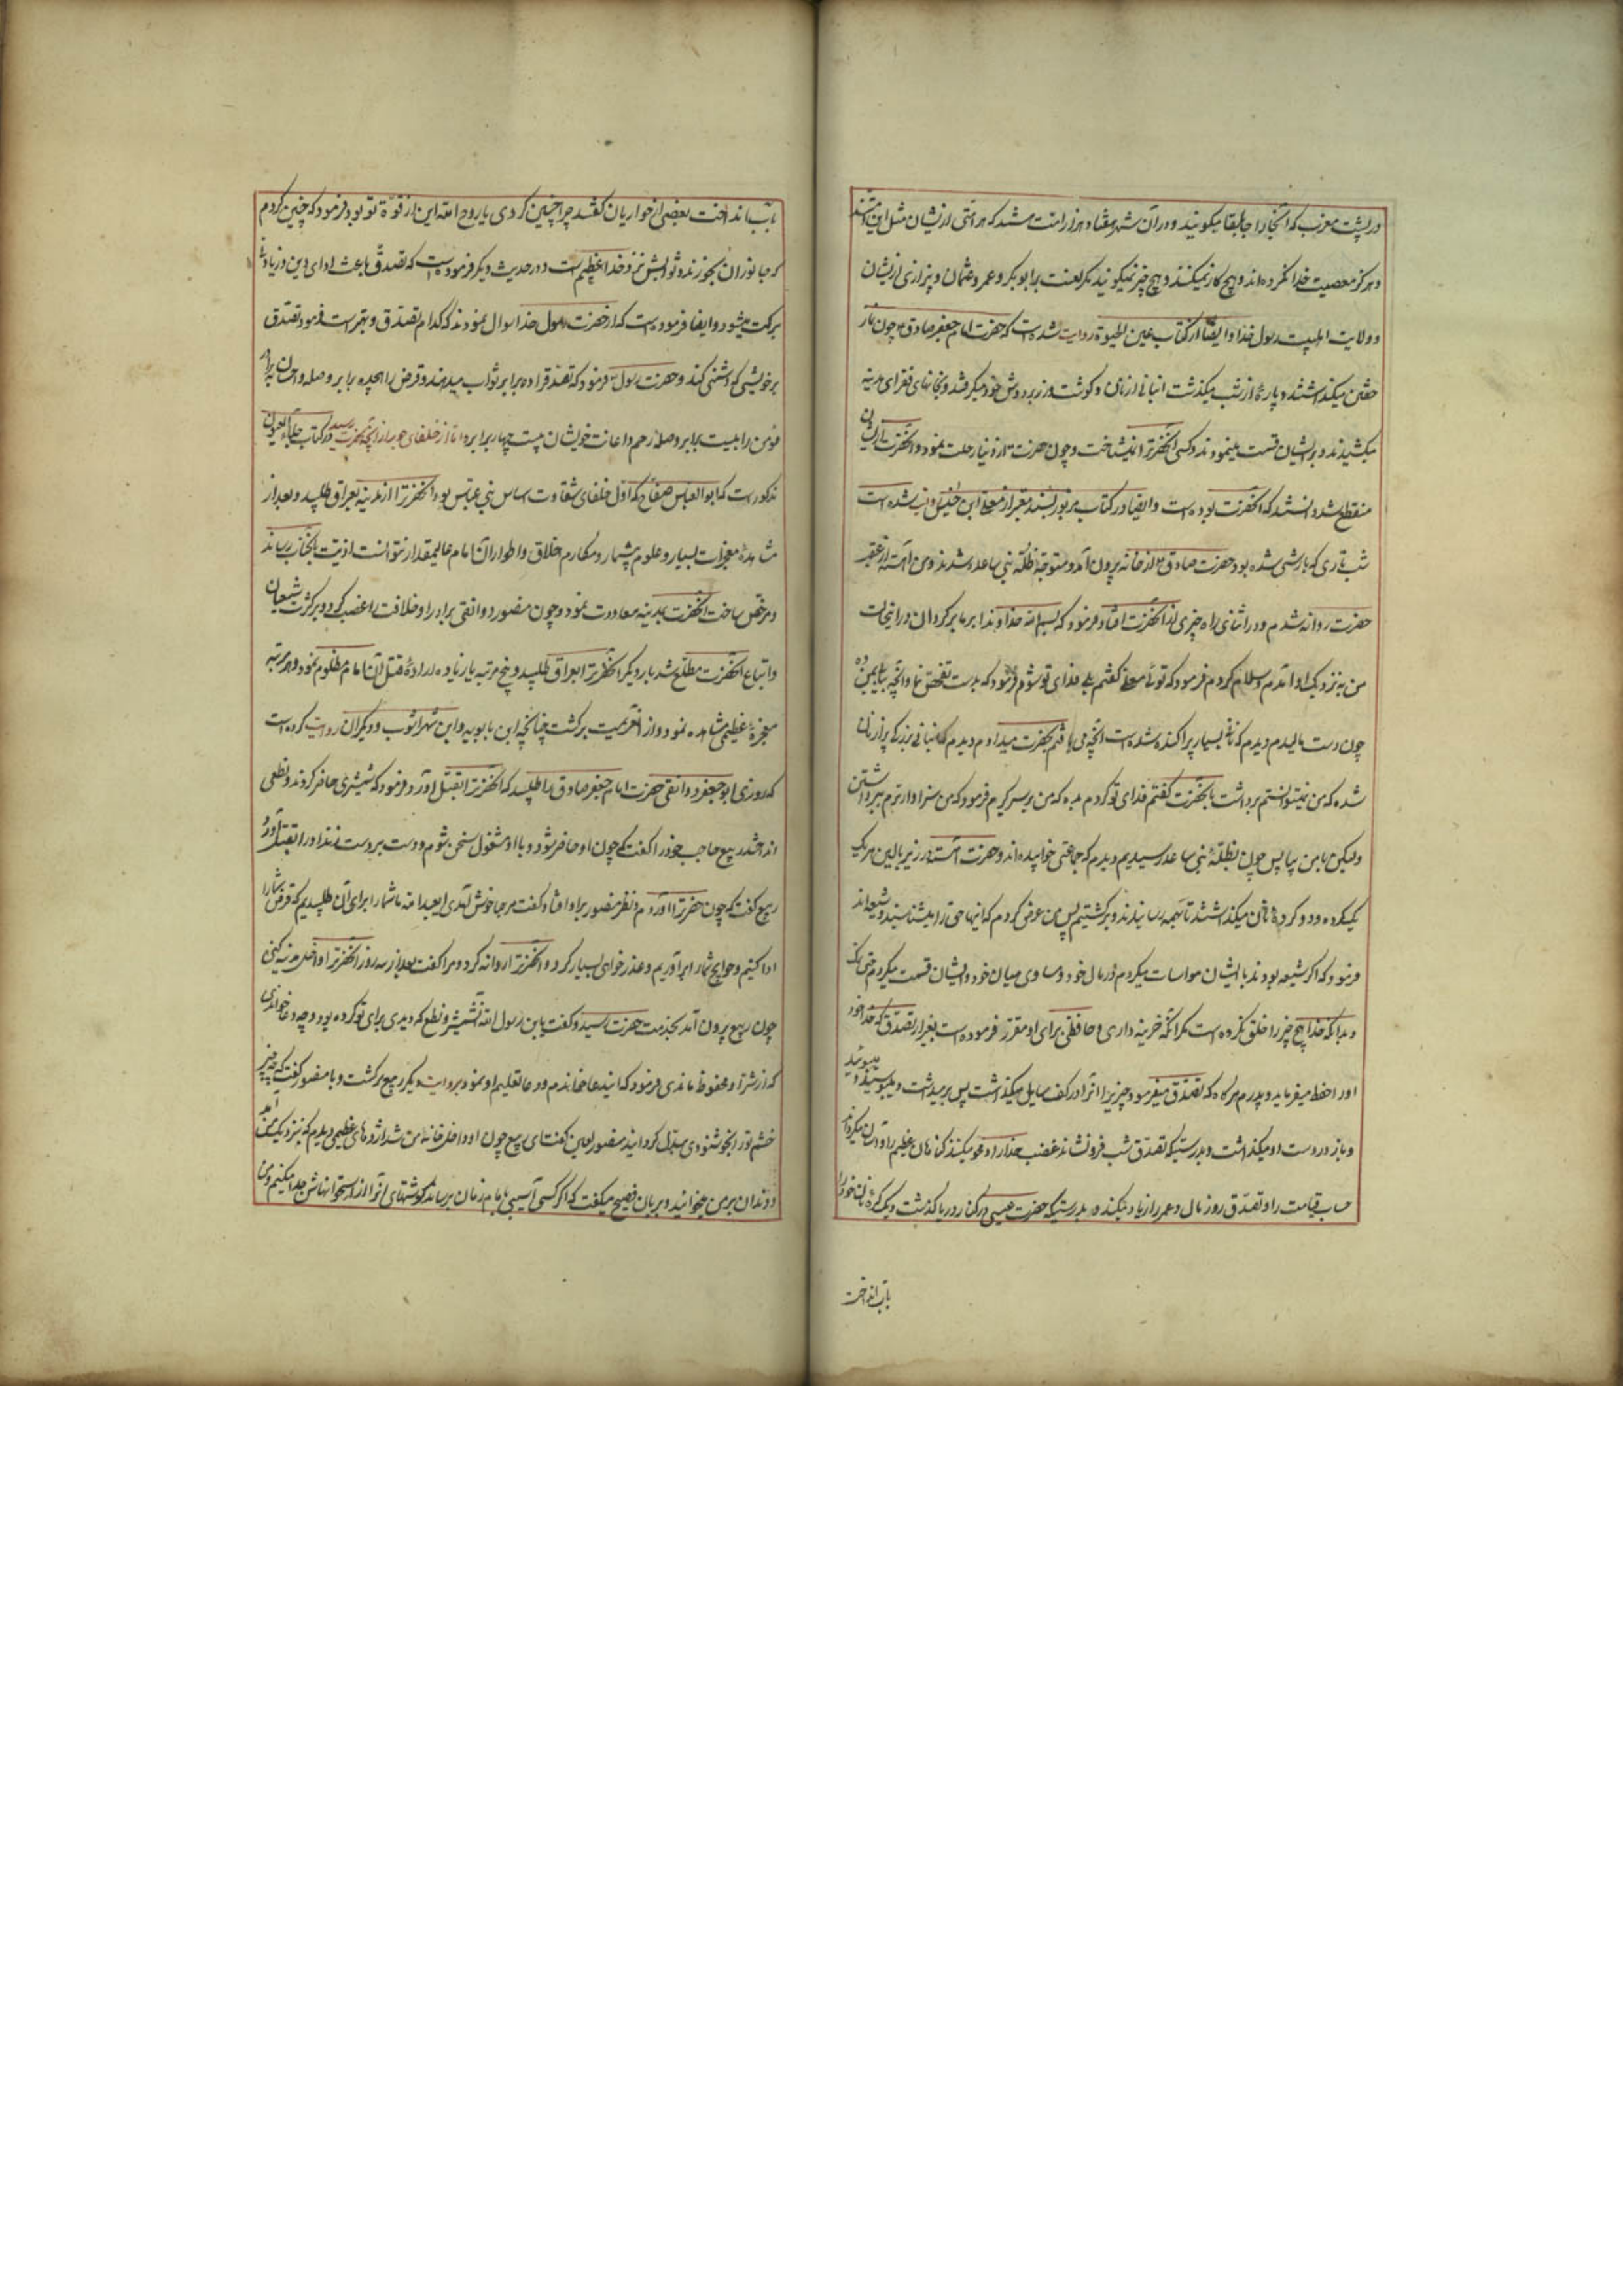 در پشت مغرب که آنجا را جابلقا میگویند و در آن شهر هفتاد هزار امت هستند که هر امتی از ایشان مثل این امتند
و هرگز معصیت خدا نکرده اند و هیچ کار نمیکنند و هیچ چیز نمیگویند مگر لعنت بر ابوبکر و عمر و عثمان و بیزاری از ایشان
و ولایت اهلبیت رسول خدا و ایضا از کتاب عین الحیوة روایت شده است که حضرت امام جعفر صادق ۴ چون نماز
خفتن میگذاشتند و پارهٔ از شب میگذشت انبانی از نان و گوشت و زر بر دوش خود میگرفتند و بخانهای فقرای مدینه
میکشیدند و بر ایشان قسمت مینمودند و کسی آنحضرترا نمیشناخت و چون حضرت از دنیا رحلت نمود و آنحضرت از ایشان
منقطع شد دانستند که آنحضرت بوده است و ایضا در کتاب مزبور بسند معتبر از معلی ابن خنیس روایت شده است
شب تاری که بارشی شده بود حضرت صادق ۴ از خانه بیرون آمد و متوجه ظلّه بنی ساعده شدند و من آهسته از عقب
حضرت روانه شدم و در اثنای راه چیزی از آنحضرت افتاد فرمود که بسم الله خداوندا بر ما برگردان در اینحالت
من به نزدیک او آمدم و سلام کردم فرمود که توئی معلی گفتم بلی فدای تو شوم فرمود که بدست تفحص نما و آنچه بیابی بمن ده
چون دست مالیدم دیدم که نان بسیار پراکنده شده است آنچه می یافتم بحضرت میدادم دیدم که انبانی بزرگ پر از نان
شده که من نمیتوانستم برداشت بآنحضرت گفتم فدای تو گردم بده که من بر سر گیرم فرمود که من سزاوارترم ببرداشتن
ولیکن با من بیا پس چون بظلّهٔ بنی ساعده رسیدیم دیدم که جماعتی خوابیده اند و حضرت آهسته در زیر بالین هر یک
یک گرده و دو گردهٔ نان میگذاشتند تا بهمه رسانیدند و برگشتیم پس من عرض کردم که اینها حق را میشناسند و شیعه اند
فرمود که اگر شیعه بودند با ایشان مواسات میکردم در مال خود و مساوی میان خود و ایشان قسمت میکردم حتی نمک
و بدانکه خدا هیچ چیز را خلق نکرده است مگر آنکه خزینه داری و حافظی برای او مقرر فرموده است بغیر از تصدّق که خدا خود
او را حفظ میفرماید و پدرم هرگاه که تصدّق میفرمود چیزیرا آنرا در کف سایل میگذاشت پس بر میداشت و میبوسید و میبوئید
و باز در دست او میگذاشت و بدرستیکه تصدّق شب فرو نشاند غضب خدا را و محو میکند گناهان عظیم را و آسان میگرداند
حساب قیامت را و تصدّق روز مال و عمر را زیاد میکند و بدرستیکه حضرت عیسی در کنار دریا گذشت و یک گرده نان خود را
بآب انداخت
بآب انداخت بعضی از حواریان گفتند چرا چنین کردی یا روح الله این از قوة تو بود فرمود که چنین کردم
که جانوران بخورند و ثوابش نزد خدا عظیم است و در حدیث دیگر فرموده است که تصدّق باعث ادای دین و زیادتی
برکت میشود و ایضا فرموده است که از حضرت رسول خدا سوال نمودند که کدام تصدّق بهتر است فرمود تصدّق
بر خویشی که دشنی کند و حضرت رسول فرمود که تصدّق را ده برابر ثواب میدهند و قرض را هجده برابر و صله و احسان برادر
مؤمن را بیست برابر و صلهٔ رحم و اعانت خویشان بیست چهار برابر و اما از خلفای جور آنچه بحضرت رسید در کتاب جلاء العیون
مذکور است که ابوالعباس صفاح که اول خلفای شقاوت اساس بنی عباس بود آنحضرترا از مدینه بعراق طلبید و بعد از
مشاهدهٔ معجزات بسیار و علوم بیشمار و مکارم اخلاق و اطوار آن امام عالیمقدار نتوانست اذیّت بآنجناب رساند
و مرخص ساخت آنحضرت بمدینه معاودت نمود و چون منصور دوانقی برادر او خلافت را غصب کرد و بر کثرت شیعیان
و اتباع آنحضرت مطلع شد بار دیگر آنحضرترا بعراق طلبید و پنج مرتبه یا زیاده ارادهٔ قتل آن امام مظلوم نمود و هر مرتبه
معجزهٔ عظیمی مشاهده نمود و از آن عزیمت برگشت چنانچه ابن بابویه و ابن شهر آشوب و دیگران روایت کرده است
که روزی ابوجعفر دوانقی حضرت امام جعفر صادق را طلبید که آنحضرترا بقتل آورد و فرمود که شمشیری حاضر کردند و نطعی
انداختند ربیع حاجب خود را گفت که چون او حاضر شود و با او مشغول سخن شوم و دست بر دست زنم او را بقتل آور
ربیع گفت که چون حضرترا آوردم و نظر منصور بر او افتاد گفت مرحبا خوش آمدی ایعبدالله ما شما را برای آن طلبیدیم که قرض شما را
ادا کنیم و حوایج شما را برآوریم و عذر خواهی بسیار کرد و آنحضرترا روانه کرد و مرا گفت بعد از سه روز آنحضرترا داخل مدینه کنی
چون ربیع بیرون آمد بخدمت حضرت رسید و گفت یا بن رسول الله آن شمشیر و نطع که دیدی برای تو کرده بود و چه دعا خواندی
که از شرّ او محفوظ ماندی فرمود که این دعا خواندم و دعا تعلیم او نمود و بروایت دیگر ربیع برگشت و با منصور گفت که چه چیز
خشم تو را بخوشنودی مبدّل گردانید منصور لعین گفت ای ربیع چون او داخل خانه من شد اژدهای عظیمی دیدم که بنزدیک من آمد
و دندان بر من میخائید و بزبان فصیح میگفت که اگر کسی آسیبی بامام زمان برسانی گوشتهای تو را از استخوانهاش جدا میکنم و من